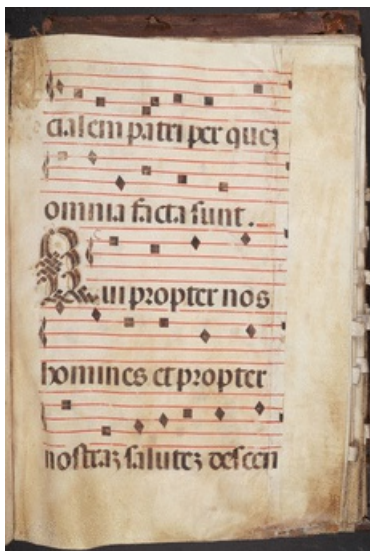 cialem patri per quez
omnia facta sunt.
Qui propter nos
homines et propter
nostraz salutez descen